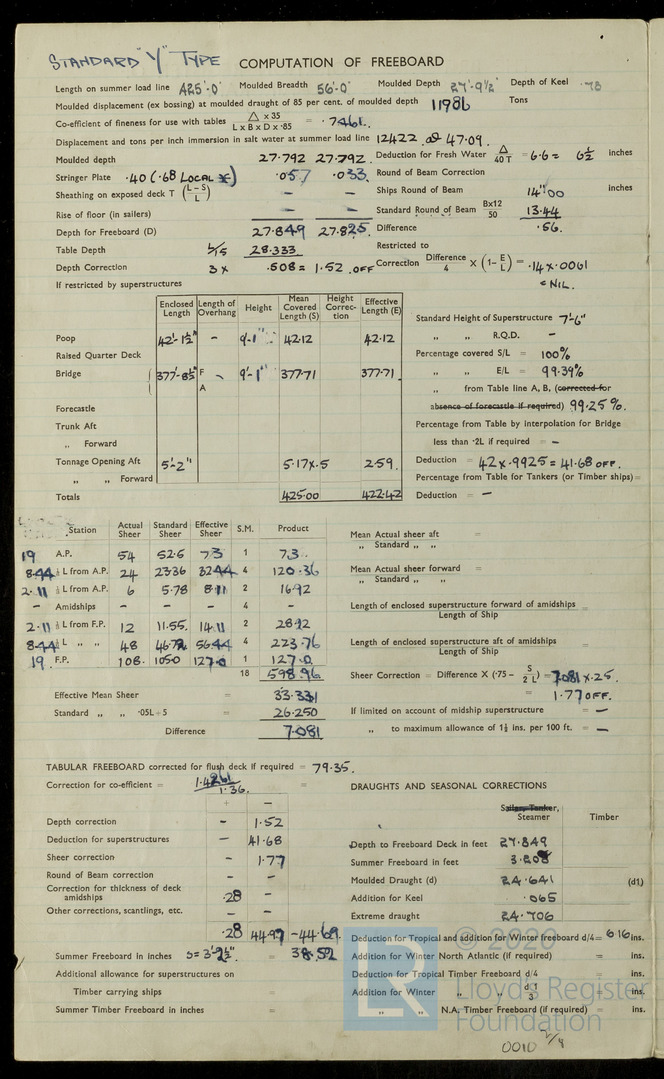 STANDARD "Y" TYPE COMPUTATION OF FREEBOARD
Length on summer load line 425'-0" Moulded Breadth 56'-0" Moulded Depth 27'-9½" Depth of Keel .78
Moulded displacement (ex bossing) at moulded draught of 85 per cent. of moulded depth 11986 Tons
Co-efficient of fineness for use with tables △ x 35 / L x B x D x ·85 = ·7461.
Displacement and tons per inch immersion in salt water at summer load line 12422 & 47.09.
Moulded depth 27.792 27.792 Deduction for Fresh Water △ / 40 T = 6.6 = 6½ inches
Stringer Plate .40 (.68 LOCAL) .057 .033 Round of Beam Correction
Sheathing on exposed deck T (L-S / L) – – Ships Round of Beam 14".00 inches
Rise of floor (in sailers) – – Standard Round of Beam Bx12 / 50 13.44
Depth for Freeboard (D) 27.849 27.825 Difference .56.
Table Depth L/15 28.333 Restricted to
Depth Correction 3 x .508 = 1.52 OFF Correction Difference / 4 × (1- E / L) = .14 x .0061
If restricted by superstructures = NIL.
Enclosed Length Length of Overhang Height Mean Covered Length (S) Height Correction Effective Length (E)
Standard Height of Superstructure 7'-6"
Poop 42'-1½" – 9'-1" 42.12 42.12 „ „ R.Q.D. –
Raised Quarter Deck Percentage covered S/L = 100%
Bridge 377'-8½" F – 9'-1" 377.71 377.71 „ E/L = 99.39%
A „ from Table line A, B, (corrected for
Forecastle absence of forecastle if required) 99.25%.
Trunk Aft Percentage from Table by interpolation for Bridge
„ Forward less than ·2L if required = –
Tonnage Opening Aft 5'-2" 5.17x.5 2.59. Deduction = 42 x .9925 = 41.68 OFF.
„ „ Forward Percentage from Table for Tankers (or Timber ships) =
Totals 425.00 422.42 Deduction = –
Station Actual Sheer Standard Sheer Effective Sheer S.M. Product
Mean Actual sheer aft =
„ Standard „ „
19 A.P. 54 52.5 73 1 73.
8.44 L from A.P. 24 23.36 32.44 4 120.36 Mean Actual sheer forward =
„ Standard „ „
2.11 L from A.P. 6 5.78 8.11 2 16.92
– Amidships – – – 4 – Length of enclosed superstructure forward of amidships / Length of Ship =
2.11 L from F.P. 12 11.55. 14.11 2 28.92
8.44 L „ „ 48 46.72 56.44 4 223.76 Length of enclosed superstructure aft of amidships / Length of Ship =
19. F.P. 108. 105.0 127.0 1 127.0
18 598.96 Sheer Correction = Difference X (·75 - S / 2 L) = 7.081 x .25.
= 1.77 OFF.
Effective Mean Sheer = 33.331
Standard „ „ ·05L+5 = 26.250 If limited on account of midship superstructure = –
Difference 7.081 „ to maximum allowance of 1½ ins. per 100 ft. = –
TABULAR FREEBOARD corrected for flush deck if required = 79.35.
Correction for co-efficient = 1.4261 / 1.36.
DRAUGHTS AND SEASONAL CORRECTIONS
+ –
Sailer, Tanker, Steamer Timber
Depth correction – 1.52
Deduction for superstructures – 41.68 Depth to Freeboard Deck in feet 27.849
Sheer correction – 1.77 Summer Freeboard in feet 3.208
Round of Beam correction – – Moulded Draught (d) 24.641 (d1)
Correction for thickness of deck amidships .28 – Addition for Keel .065
Other corrections, scantlings, etc. – Extreme draught 24.706
.28 44.97 -44.69. Deduction for Tropical and addition for Winter freeboard d/4= 6.16 ins.
Summer Freeboard in inches S = 3'-2½" = 38.52 Addition for Winter North Atlantic (if required) = ins.
Additional allowance for superstructures on Deduction for Tropical Timber freeboard d/4 = ins.
Timber carrying ships = Addition for Winter „ „ d1 / 3 = ins.
Summer Timber Freeboard in inches = „ „ N.A. Timber Freeboard (if required) = ins.
© 2020
LR
Lloyd's Register
Foundation
0010 2/4